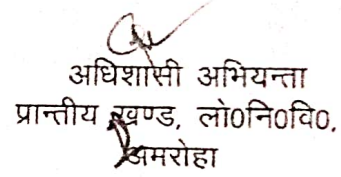 अधिशासी अभियन्ता
प्रान्तीय खण्ड, लो०नि०वि०,
अमरोहा